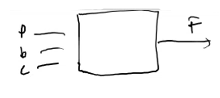 P
b
c
F